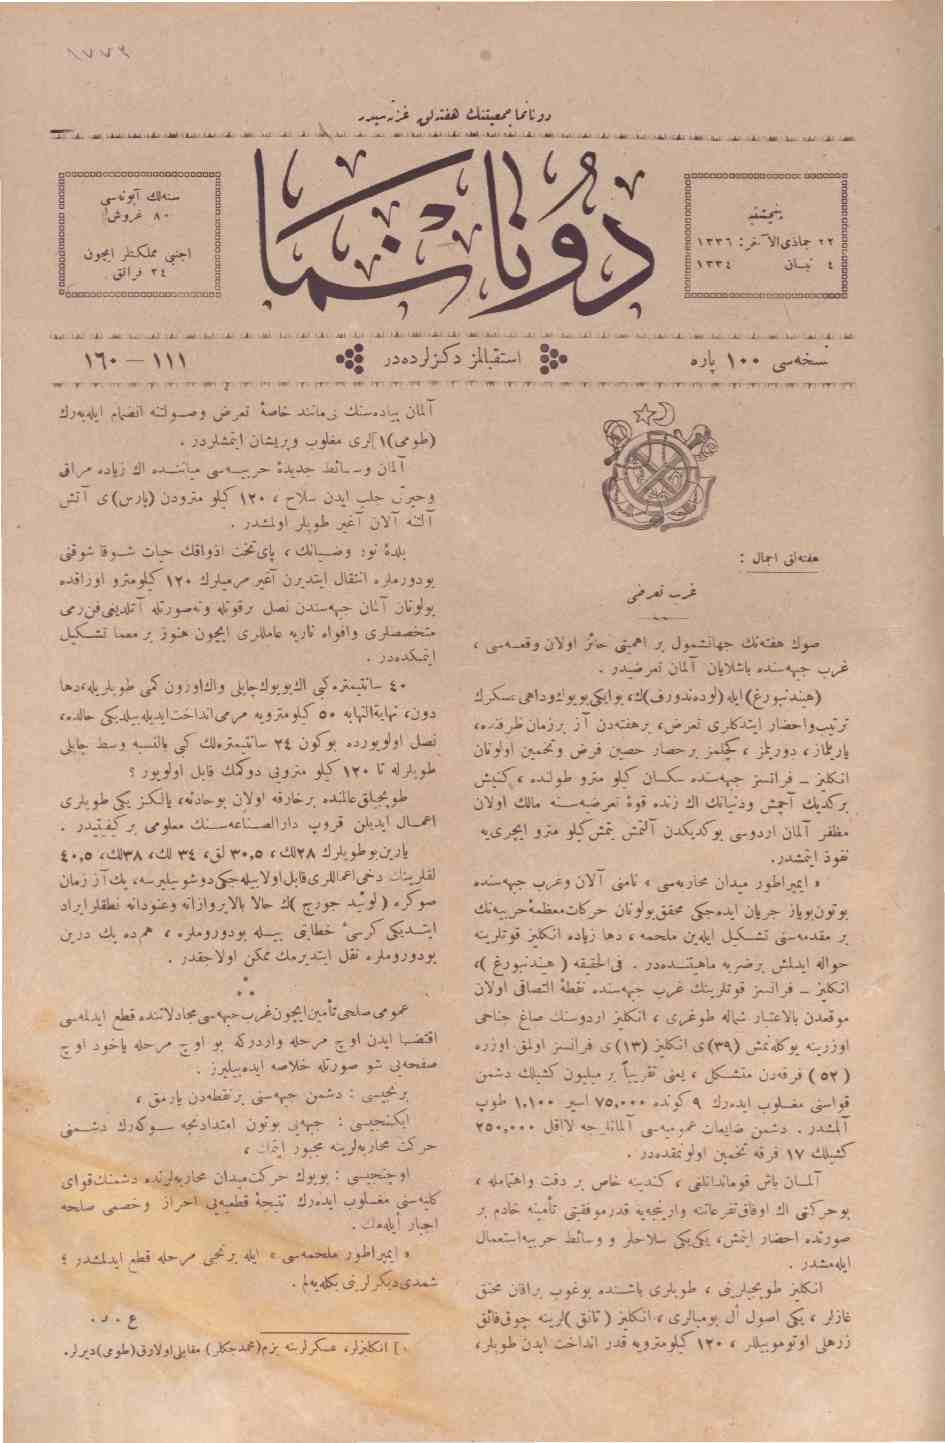 ١٧٧٣
دونانما جمعيتنك هفته‌لق غزته‌سيدر
پنجشنبه
٢٢ جماذى الآخر: ١٣٣٦
٤ نيسان ١٣٣٤
دونانما
سنه‌لك آبونه‌سى
٨٠ غروش
اجنبى مملكتلر ايچون
٢٤ فرانق
نسخه‌سى ١٠٠ پاره
استقبالمز دكزلرده‌در
١١١ — ١٦٠
هفته‌لق اجمال :
غرب تعرضى
صوك هفته‌نك جهانشمول بر اهميتى حائز اولان وقعه‌سى ،
غرب جبهه‌سنده باشلايان آلمان تعرضيدر .
(هيندنبورغ) ايله (لوده‌ندورف)ك، بو ايكى بويوك وداهى عسكرك
ترتيب واحضار ايتدكلرى تعرض، برهفته‌دن آز برزمان ظرفنده،
يارلماز، دوريلمز، كچلمز برحصار حصين فرض وتخمين اولونان
انكليز ــ فرانسز جبهه‌سنده سكسان كيلو مترو طولنده ، كنيش
بركديك آچمش ودنيانك اك زنده قوۀ تعرضيه‌سنه مالك اولان
مظفر آلمان اردوسى بوكديكدن آلتمش يتمش كيلو مترو ايچرى‌يه
نفوذ ايتمشدر.
« ايمپراطور ميدان محاربه‌سى » نامنى آلان وغرب جبهه‌سنده
بوتون بوياز جريان ايده‌جكى محقق بولونان حركات معظمۀ حربيه‌نك
بر مقدمه‌سنى تشكيل ايله‌ين ملحمه ، دها زياده انكليز قوتلرينه
حواله ايدلمش برضربه ماهيتنده‌در . فى الحقيقه ( هيندنبورغ )،
انكليز ــ فرانسز قوتلرينك غرب جبهه‌سنده نقطۀ التصاقى اولان
موقعدن بالاعتبار شماله طوغرى ، انكليز اردوسنك صاغ جناحى
اوزرينه يوكله‌نمش (٣٩)ى انكليز (١٣)ى فرانسز اولمق اوزره
(٥٢) فرقه‌دن متشكل ، يعنى تقريباً بر ميليون كشيلك دشمن
قواسنى مغلوب ايده‌رك ٩ كونده ٧٥,٠٠٠ اسير ١,١٠٠ طوپ
آلمشدر . دشمن ضايعات عموميه‌سى آلمانلرجه لااقل ٢٥٠,٠٠٠
كشيلك ١٧ فرقه تخمين اولونمقده‌در .
آلمان باش قوماندانلغى ، كندينه خاص بر دقت واهتمامله ،
بوحركتى اك اوفاق تفرعاتنه وارنجه‌يه قدر موفقيتى تأمينه خادم بر
صورتده احضار ايتمش، يكى يكى سلاحلر و وسائط حربيه استعمال
ايله‌مشدر .
انكليز طوپجيلرينى ، طوپلرى باشنده بوغوب براقان مخنق
غازلر ، يكى اصول أل بومبالرى ، انكليز ( تانق )لرينه چوق فائق
زرهلى اوتوموبيللر ، ١٢٠ كيلومترويه قدر انداخت ايدن طوپلر،
آلمان پياده‌سنك بى‌مانند خاصۀ تعرض وصولتنه انضمام ايله‌يه‌رك
(طومى)١]لرى مغلوب وپريشان ايتمشلردر .
آلمان وسائط جديدۀ حربيه‌سى مياننده اك زياده مراقى
وحيرتى جلب ايدن سلاح ، ١٢٠ كيلو مترودن (پارس)ى آتش
آلتنه آلان آغير طوپلر اولمشدر .
بلدۀ نور وضيانك ، پاى تخت اذواقك حيات شوقا شوقنى
بودروملره انتقال ايتديرن آغير مرميلرك ١٢٠ كيلومترو اوزاقده
بولونان آلمان جبهه‌سندن نصل برقوتله ونه‌صورتله آتلديغى فن رمى
متخصصلرى وافواه ناريه عامللرى ايچون هنوز بر معما تشكيل
ايتمكده‌در .
٤٠ سانتيمتره كبى اك بويوك چاپلى واك اوزون كمى طوپلريله، دها
دون، نهايةالنهايه ٥٠ كيلومترويه مرمى انداخت ايديله‌بيلديكى حالده،
نصل اولويورده بوكون ٢٤ سانتيمتره‌لك كبى بالنسبه وسط چاپلى
طوپلرله تا ١٢٠ كيلو مترويى دوكمك قابل اولويور ؟
طوپجيلق عالمنده برخارقه اولان بوحادثه، يالكز يكى طوپلرى
اعمال ايديلن قروپ دارالصناعه‌سنك معلومى بركيفيتيدر .
يارين بو طوپلرك ٢٨لك، ٣٠,٥ لق، ٣٤ لك، ٣٨لك، ٤٠,٥
لقلرينك دخى اعماللرى قابل اولابيله‌جكى دوشونيليرسه، پك آز زمان
صوكره ( لوئيد جورج )ك حالا بالاپروازانه وعنودانه نطقلر ايراد
ايتديكى كرسىٔ خطابتى بيله بودروملره ، هم‌ده پك درين
بودروملره نقل ايتديرمك ممكن اولاجقدر .
* * *
عمومى صلحى تأمين ايچون غرب جبهه‌سى مجادلاتنده قطع ايدلمه‌سى
اقتضا ايدن اوچ مرحله واردركه بو اوچ مرحله ياخود اوچ
صفحه‌يى شو صورتله خلاصه ايده‌بيليرز .
برنجيسى : دشمن جبهه‌سنى برنقطه‌دن يارمق ،
ايكنجيسى : جبهه‌يى بوتون امتدادنجه سوكه‌رك دشمنى
حركت محاربه‌لرينه مجبور ايتمك ،
اوچنجيسى : بويوك حركت ميدان محاربه‌لرنده دشمنك قواى
كليه‌سنى مغلوب ايده‌رك نتيجۀ قطعيه‌يى احراز وخصمى صلحه
اجبار ايله‌مك .
« ايمپراطور ملحمه‌سى » ايله برنجى مرحله قطع ايدلمشدر ؛
شمدى ديكرلرينى بكله‌يه‌لم .
ع . د .
١] انكليزلر، عسكرلرينه بزم (محمدجكلر) مقابلى اولارق (طومى) ديرلر.